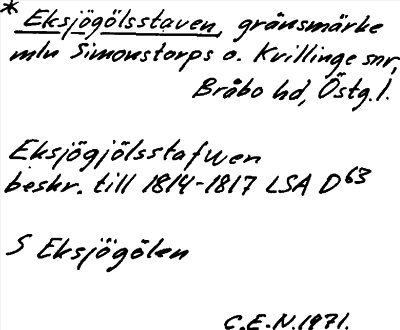 * Eksjögölsstaven, gränsmärke
mln Simonstorps o. Kvillinge snr,
Bråbo hd, Östg.l.
Eksjögjölsstafwen
beskr. till 1814-1817 LSA D63
S Eksjögölen
C.E-N.1971.